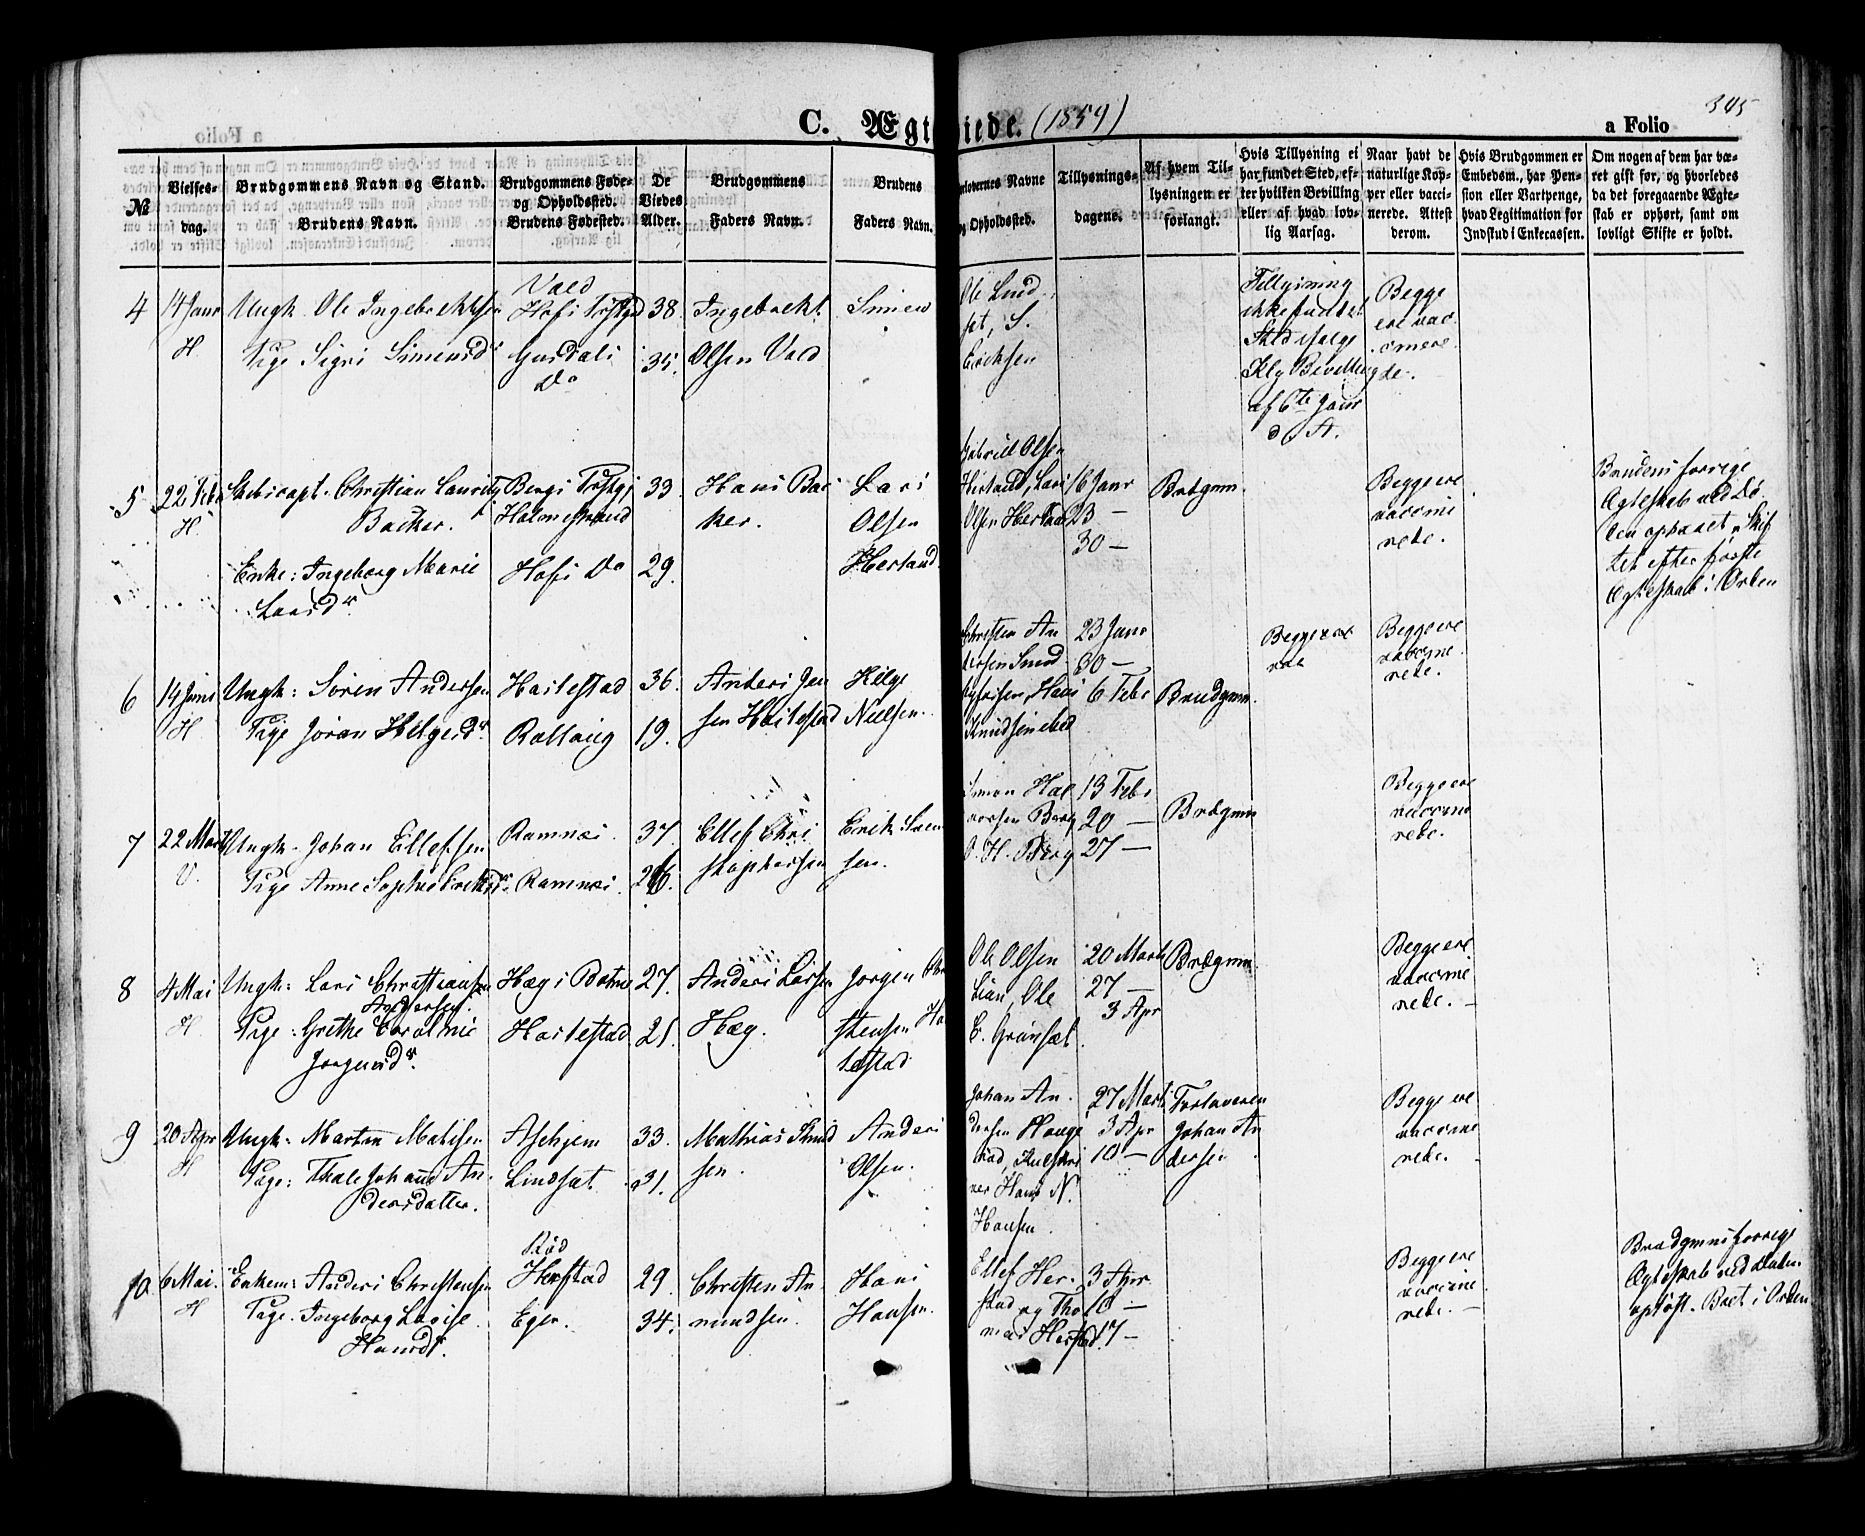 C. Ægt
iede. (1859)
a Folio
345
№
Vielses-
dag.
Brudgommens Navn og Stand.
Brudens Navn.
Brudgommens Føde-
og Opholdssted.
Brudens Fødested.
De
Viedes
Alder.
Brudgommens
Faders Navn.
Brudens
Faders Navn.
orlovernes Navne
og Opholdssted.
Tillysnings-
dagene.
Af hvem Til-
lysningen er
forlangt.
Hvis Tillysning ei
har fundet Sted, ef-
ter hvilken Bevilling
eller af hvad lov-
lig Aarsag.
Naar havt de
naturlige Kop-
per eller vacci-
nerede. Attest
derom.
Hvis Brudgommen er
Embedsm., har Pen-
sion eller Vartpenge,
hvad Legitimation for
Indskud i Enkecassen.
Om nogen af dem har væ-
ret gift for, og hvorledes
da det foregaaende Ægte-
skab er ophørt, samt om
lovligt Skifte er holdt.
4
14 Janr
H.
Ungk. Ole Ingebrektsen
Pige Sigri Simensd.
Vald
Hofs Prstgj
38.
35.
Ingebrekt
Olsen Vald
Simen
Ole Lind
set, S.
Ericksen
Tillysning
ikke fundet
Sted ifølge
Kly Bevilling
af 6te Janr
d. A.
Begge
ere vac
cinere
de.
5
22 Feb
H.
Skibscapt. Christian Lauritz
Backer.
Enke: Ingeborg Marie
Larsdr
Bergs Prstgj
Holmestrand
Hofs Do
33
29.
Hans Bac
ker.
Lars
Olsen
Herland.
Gabriell Olsen
Herland, Lars
Olsen Herland
16 Janr
23 —
30 —
Brdgmn.
Begge ere
vacci
nede.
Brudens forrige
Ægteskab ved Dø
den ophævet, Skif
tet efter første
Ægteskab i Orden
6
14 Juni
H
Ungk: Søren Andersen
Pige Jøran Helgesdr.
Haslestad
36.
19.
Anders Jen
sen Haslestad
Helge
Nielsen.
Christen An
dersen
23 Janr
30 —
6 Feb
Brudgmn.
Begge ere
vaccine
rede.
7
22 Marts
V.
Ungk. Johan Ellefsen
Pige Anne Sophie Eriksdr.
Ramnæs
Ramnæs.
37.
26.
Ellef Chri
stophersen
Erik Sven
sen.
Simon Hal
vorsen Berg
O. H. Berg
13 Feb
20 —
27 —
Brdgmn
Begge ere
vaccine
rede.
8
4 Mai
H
Ungk: Lars Christiansen
Andersen.
Pige: Grethe Caroline
Jørgensdr.
Hæg i Botne
Haslestad
27.
25.
Anders Larsen
Hæg.
Jørgen
stensen Ha
slestad
Ole Olsen
Lian, Ole
E. Grønsæt.
20 Marts
27 —
3 Apr
Brdgmn
Begge ere
vaccine
rede.
9
20 Apr
H
Ungk: Martin Mathisen
Pige: Thale Johanne An
dersdatter.
Aschjem
Lindsæt.
33.
31.
Mathias Knud
sen.
Anders
Olsen.
Johan An
dersen Hauge
rud,
Hans N.
Hansen.
27 Marts
3 Apr
10 —
Forloveren
Johan An
dersen
Begge ere
vaccine
rede.
10
6 Mai.
H
Enkem: Anders Christensen
Pige. Ingeborg Lovise
Hansdr.
Rød
Herstad
Eger.
29.
34.
Christen An
mundsen.
Hans
Hansen.
Ellef Her
stad og Tho
mas Herstad.
3 Apr
10 —
17 —
Begge ere
vaccine
rede.
Brudgmns forrige
Ægteskab ved Døden
opløst. Boet i Orden